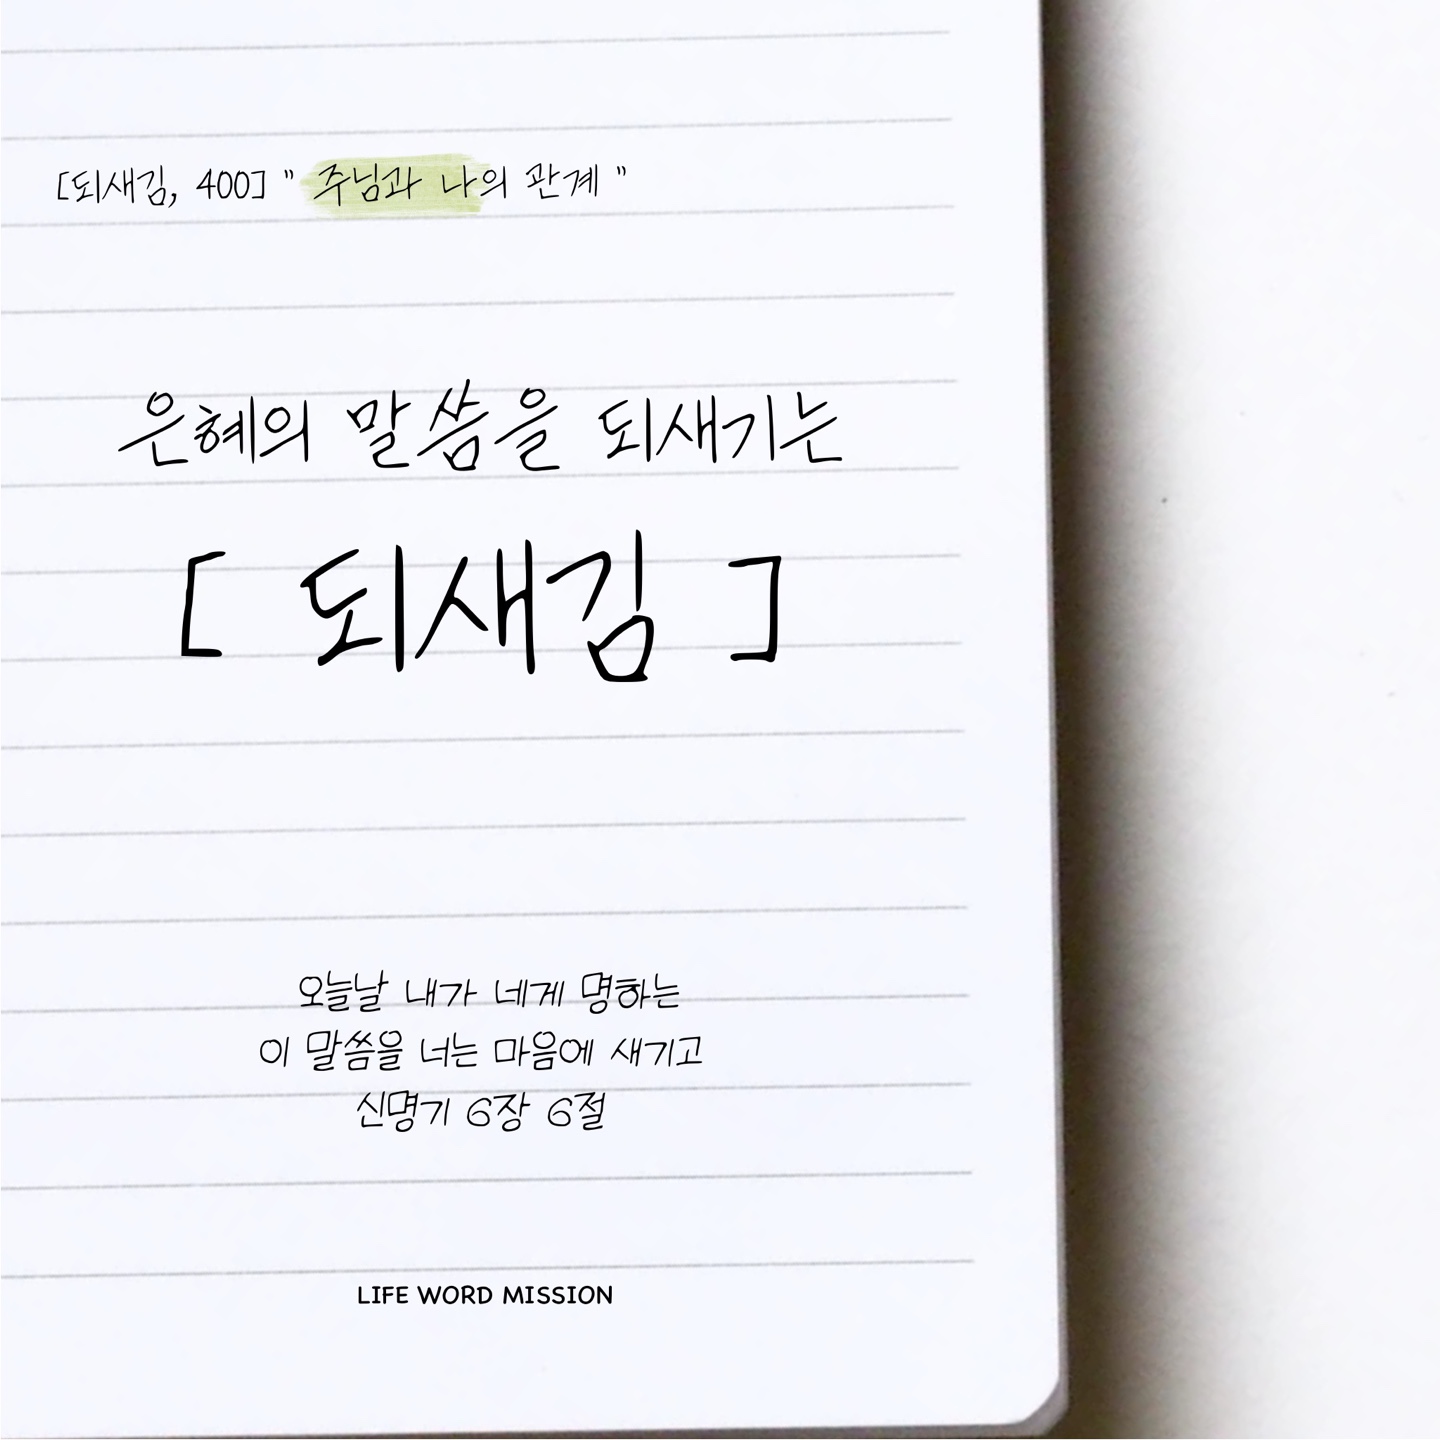 [되새김, 400] " 주님과 나의 관계 "
은혜의 말씀을 되새기는
[ 되새김 ]
오늘날 내가 네게 명하는
이 말씀을 너는 마음에 새기고
신명기 6장 6절
LIFE WORD MISSION